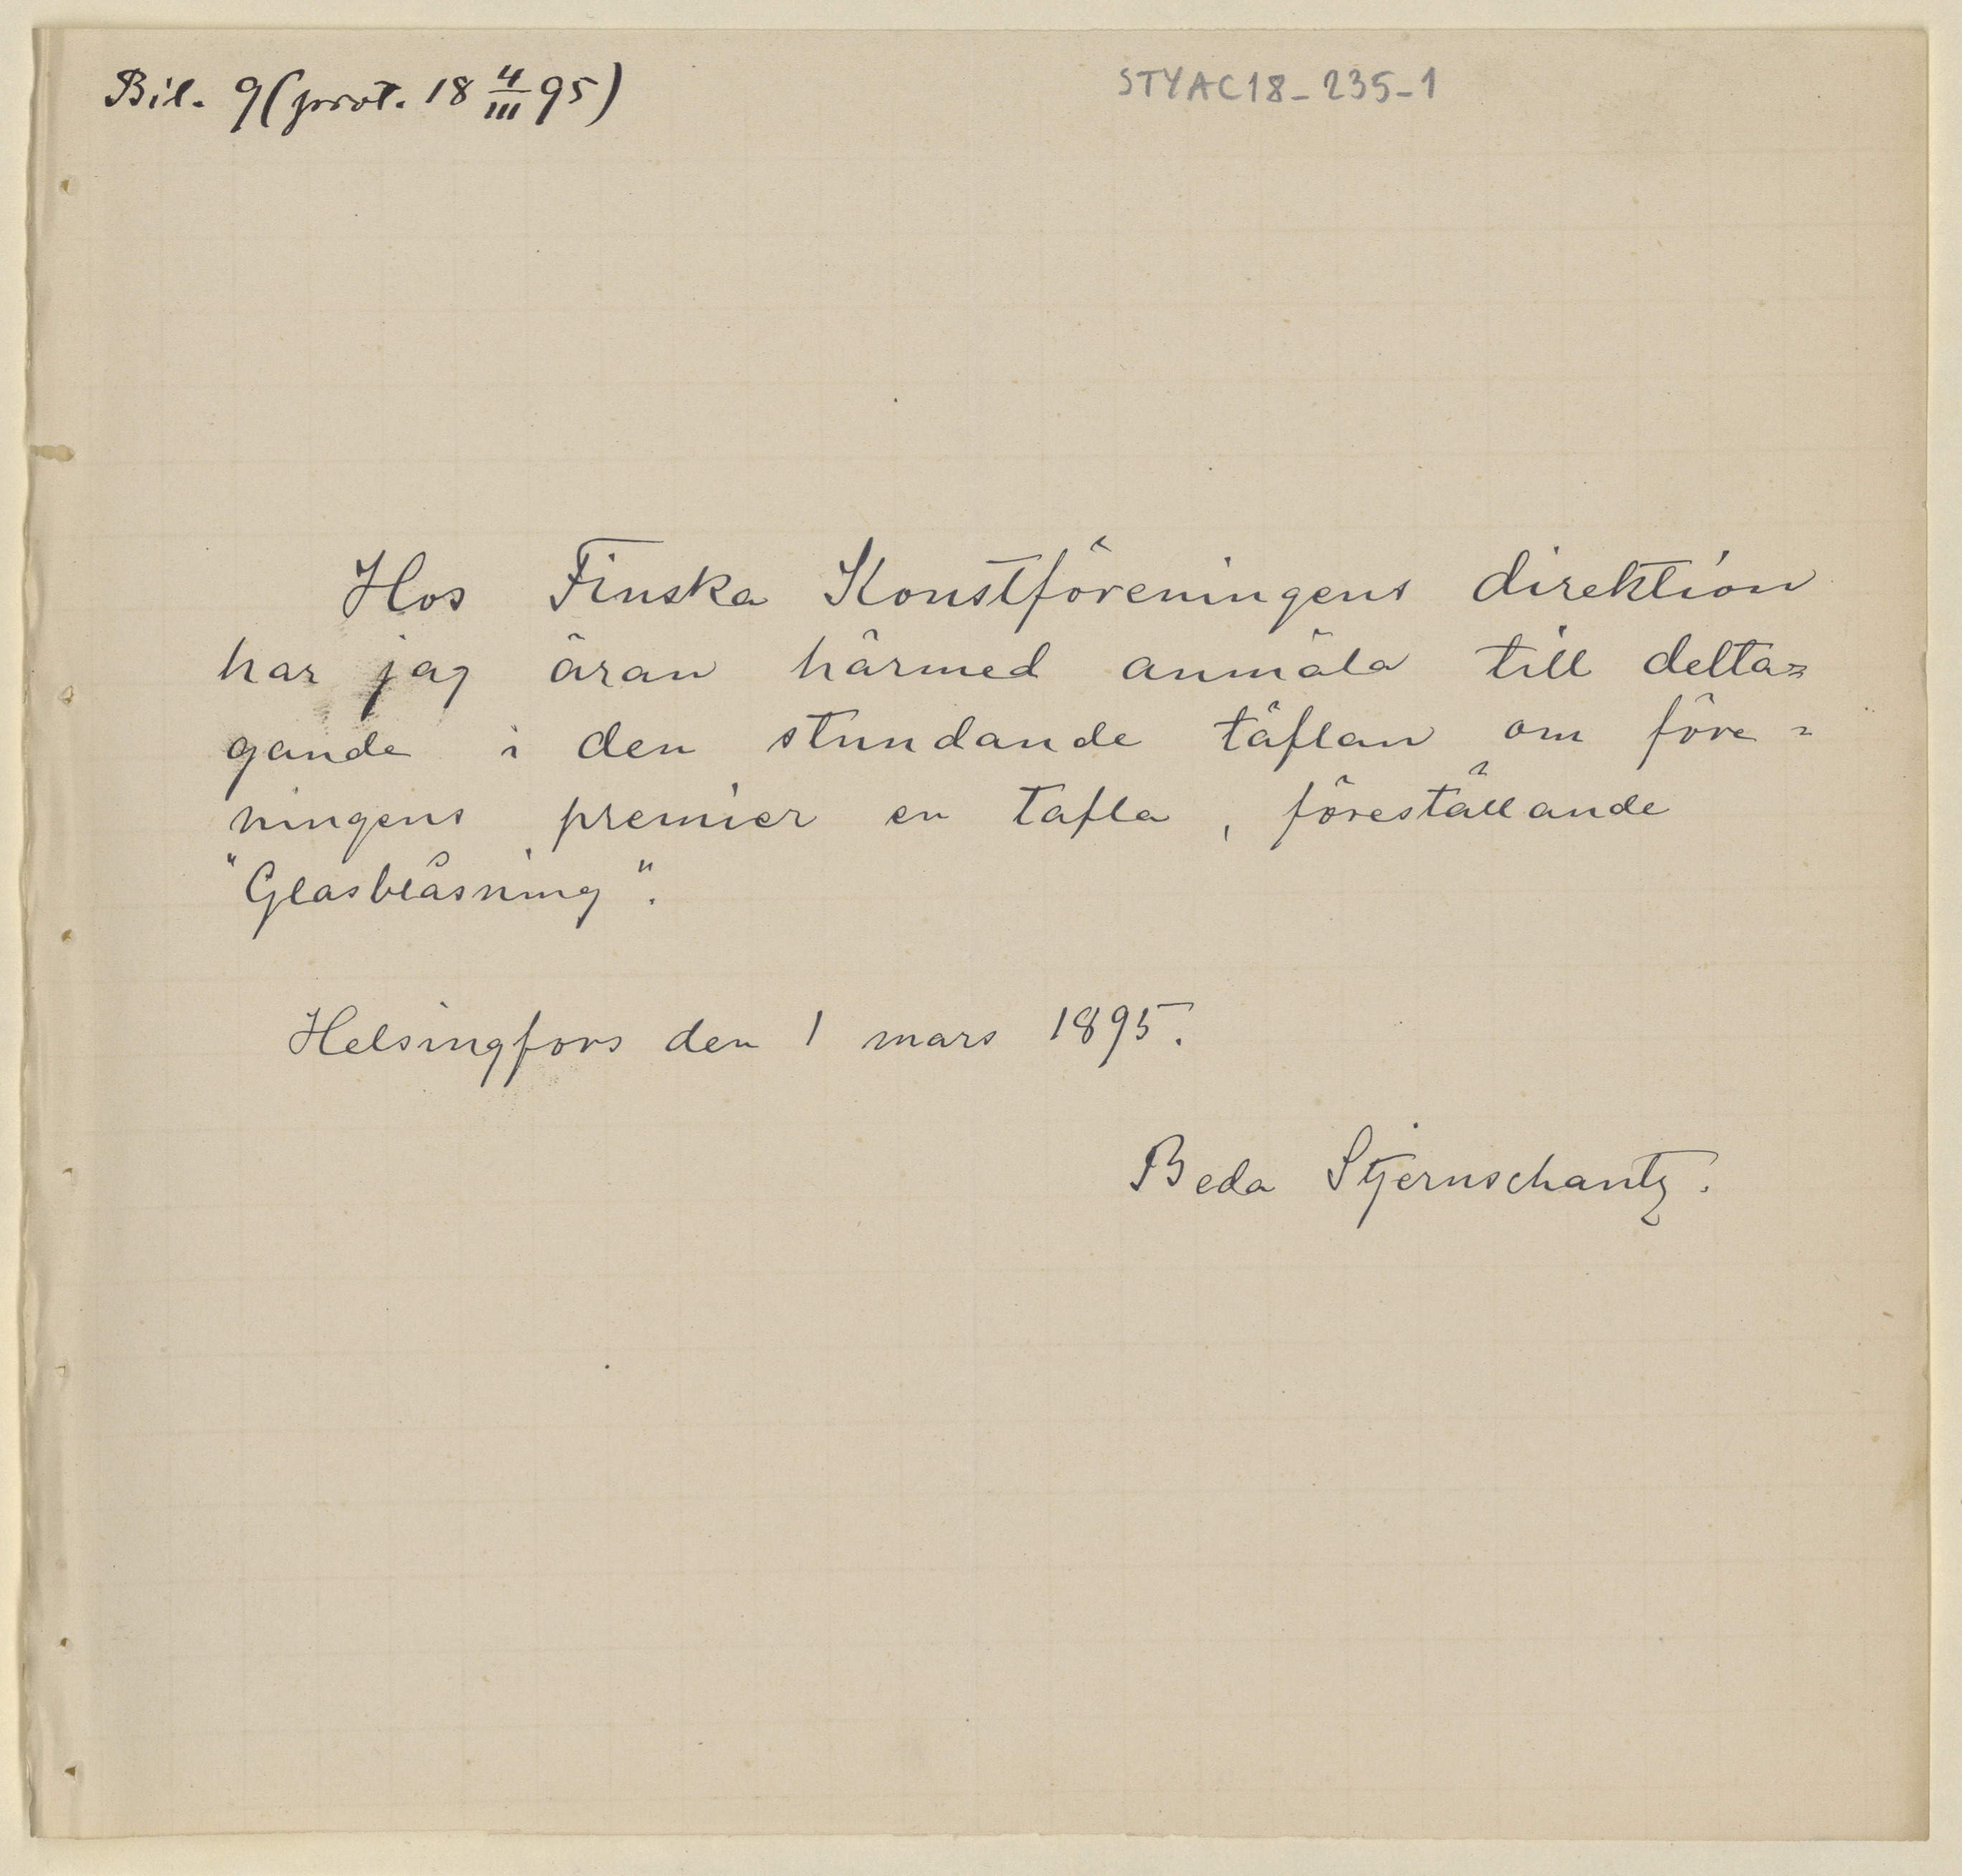 Bil. 9 (prot. 18 4/III 95)
STYAC18-235-1
Hos Finska Konstföreningens direktion
har jag äran härmed anmäla till delta=
gande i den stundande täflan om före=
ningens premier en tafla, föreställande
"Glasblåsning".
Helsingfors den 1 mars 1895.
Beda Stjernschantz.